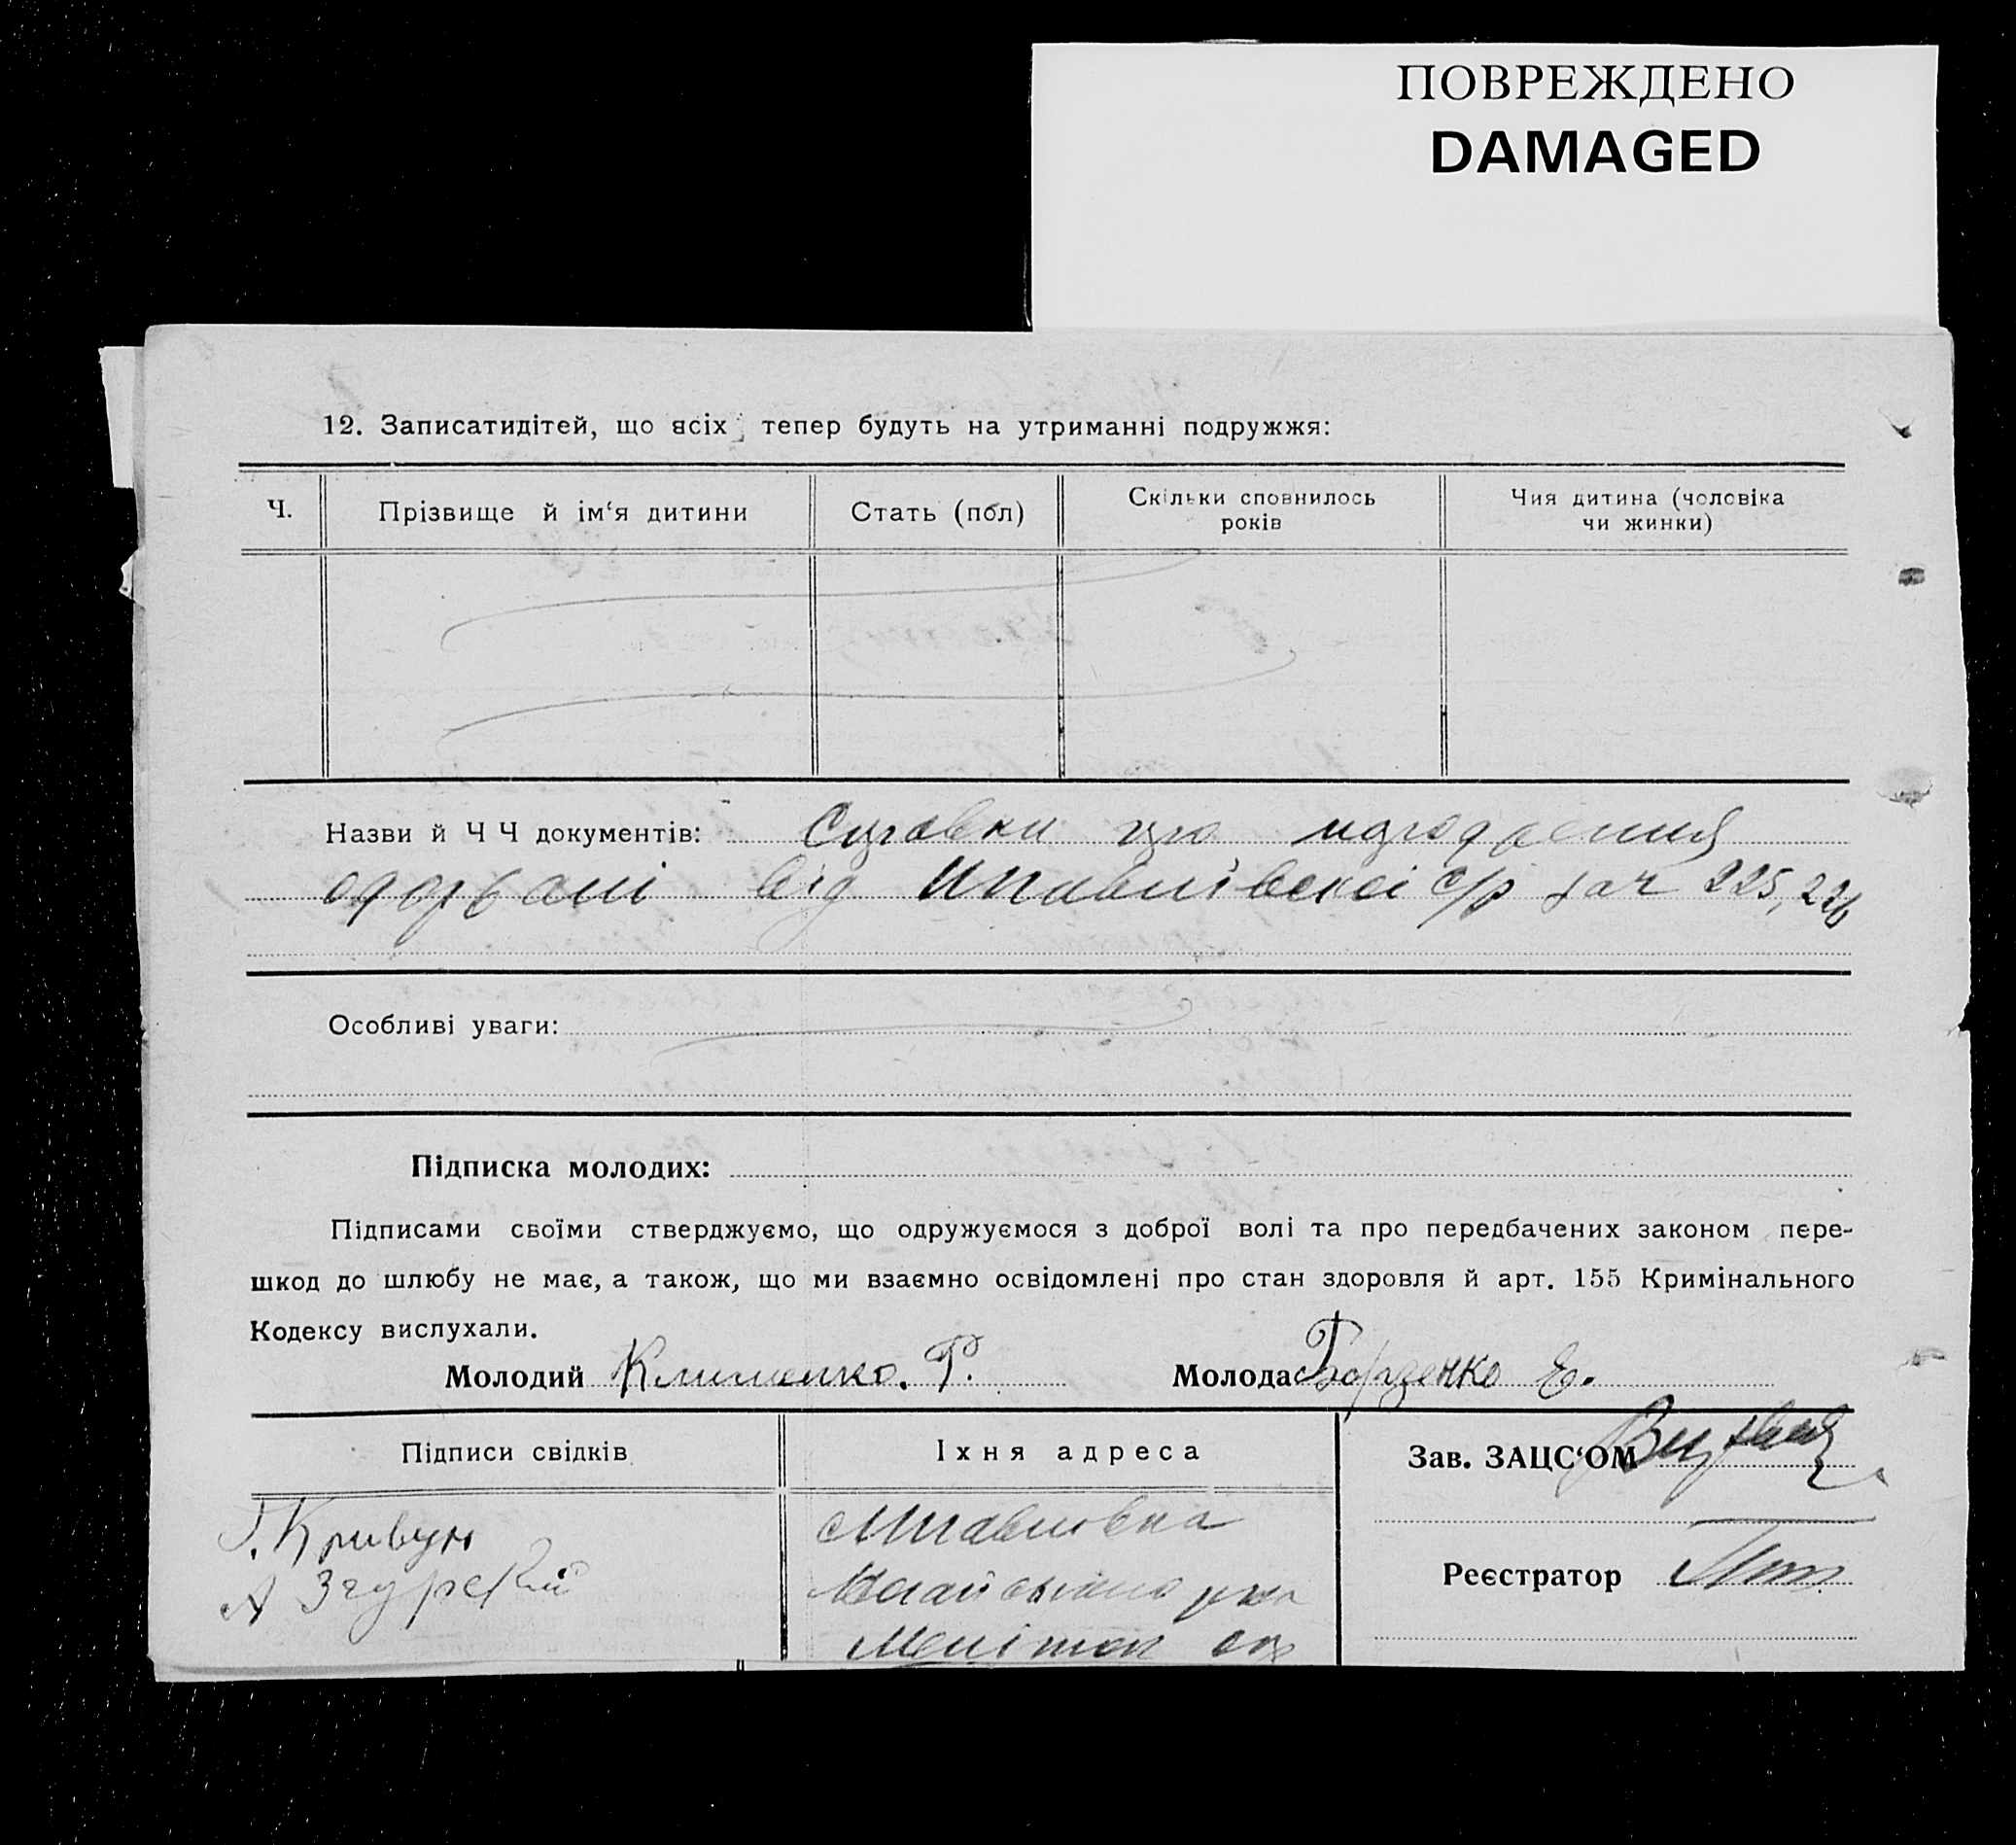 ПОВРЕЖДЕНО
DAMAGED
12. Записатидітей, що всіх тепер будуть на утриманні подружжя:
Ч. Прізвище й ім‘я дитини Стать (пол) Скільки сповнилось років Чия дитина (чоловіка чи жинки)
Назви й Ч Ч документів: Справки про народження
від с/р за ч 225, 226
Особливі уваги:
Підписка молодих:
Підписами своїми стверджуємо, що одружуємося з доброї волі та про передбачених законом пере-
шкод до шлюбу не має, а також, що ми взаємно освідомлені про стан здоровля й арт. 155 Кримінального
Кодексу вислухали.
Молодий Клименко. Р. Молода Борзенко Е.
Підписи свідків Іхня адреса Зав. ЗАЦС‘ОМ
Г. Кривун
А Згурский
Реєстратор